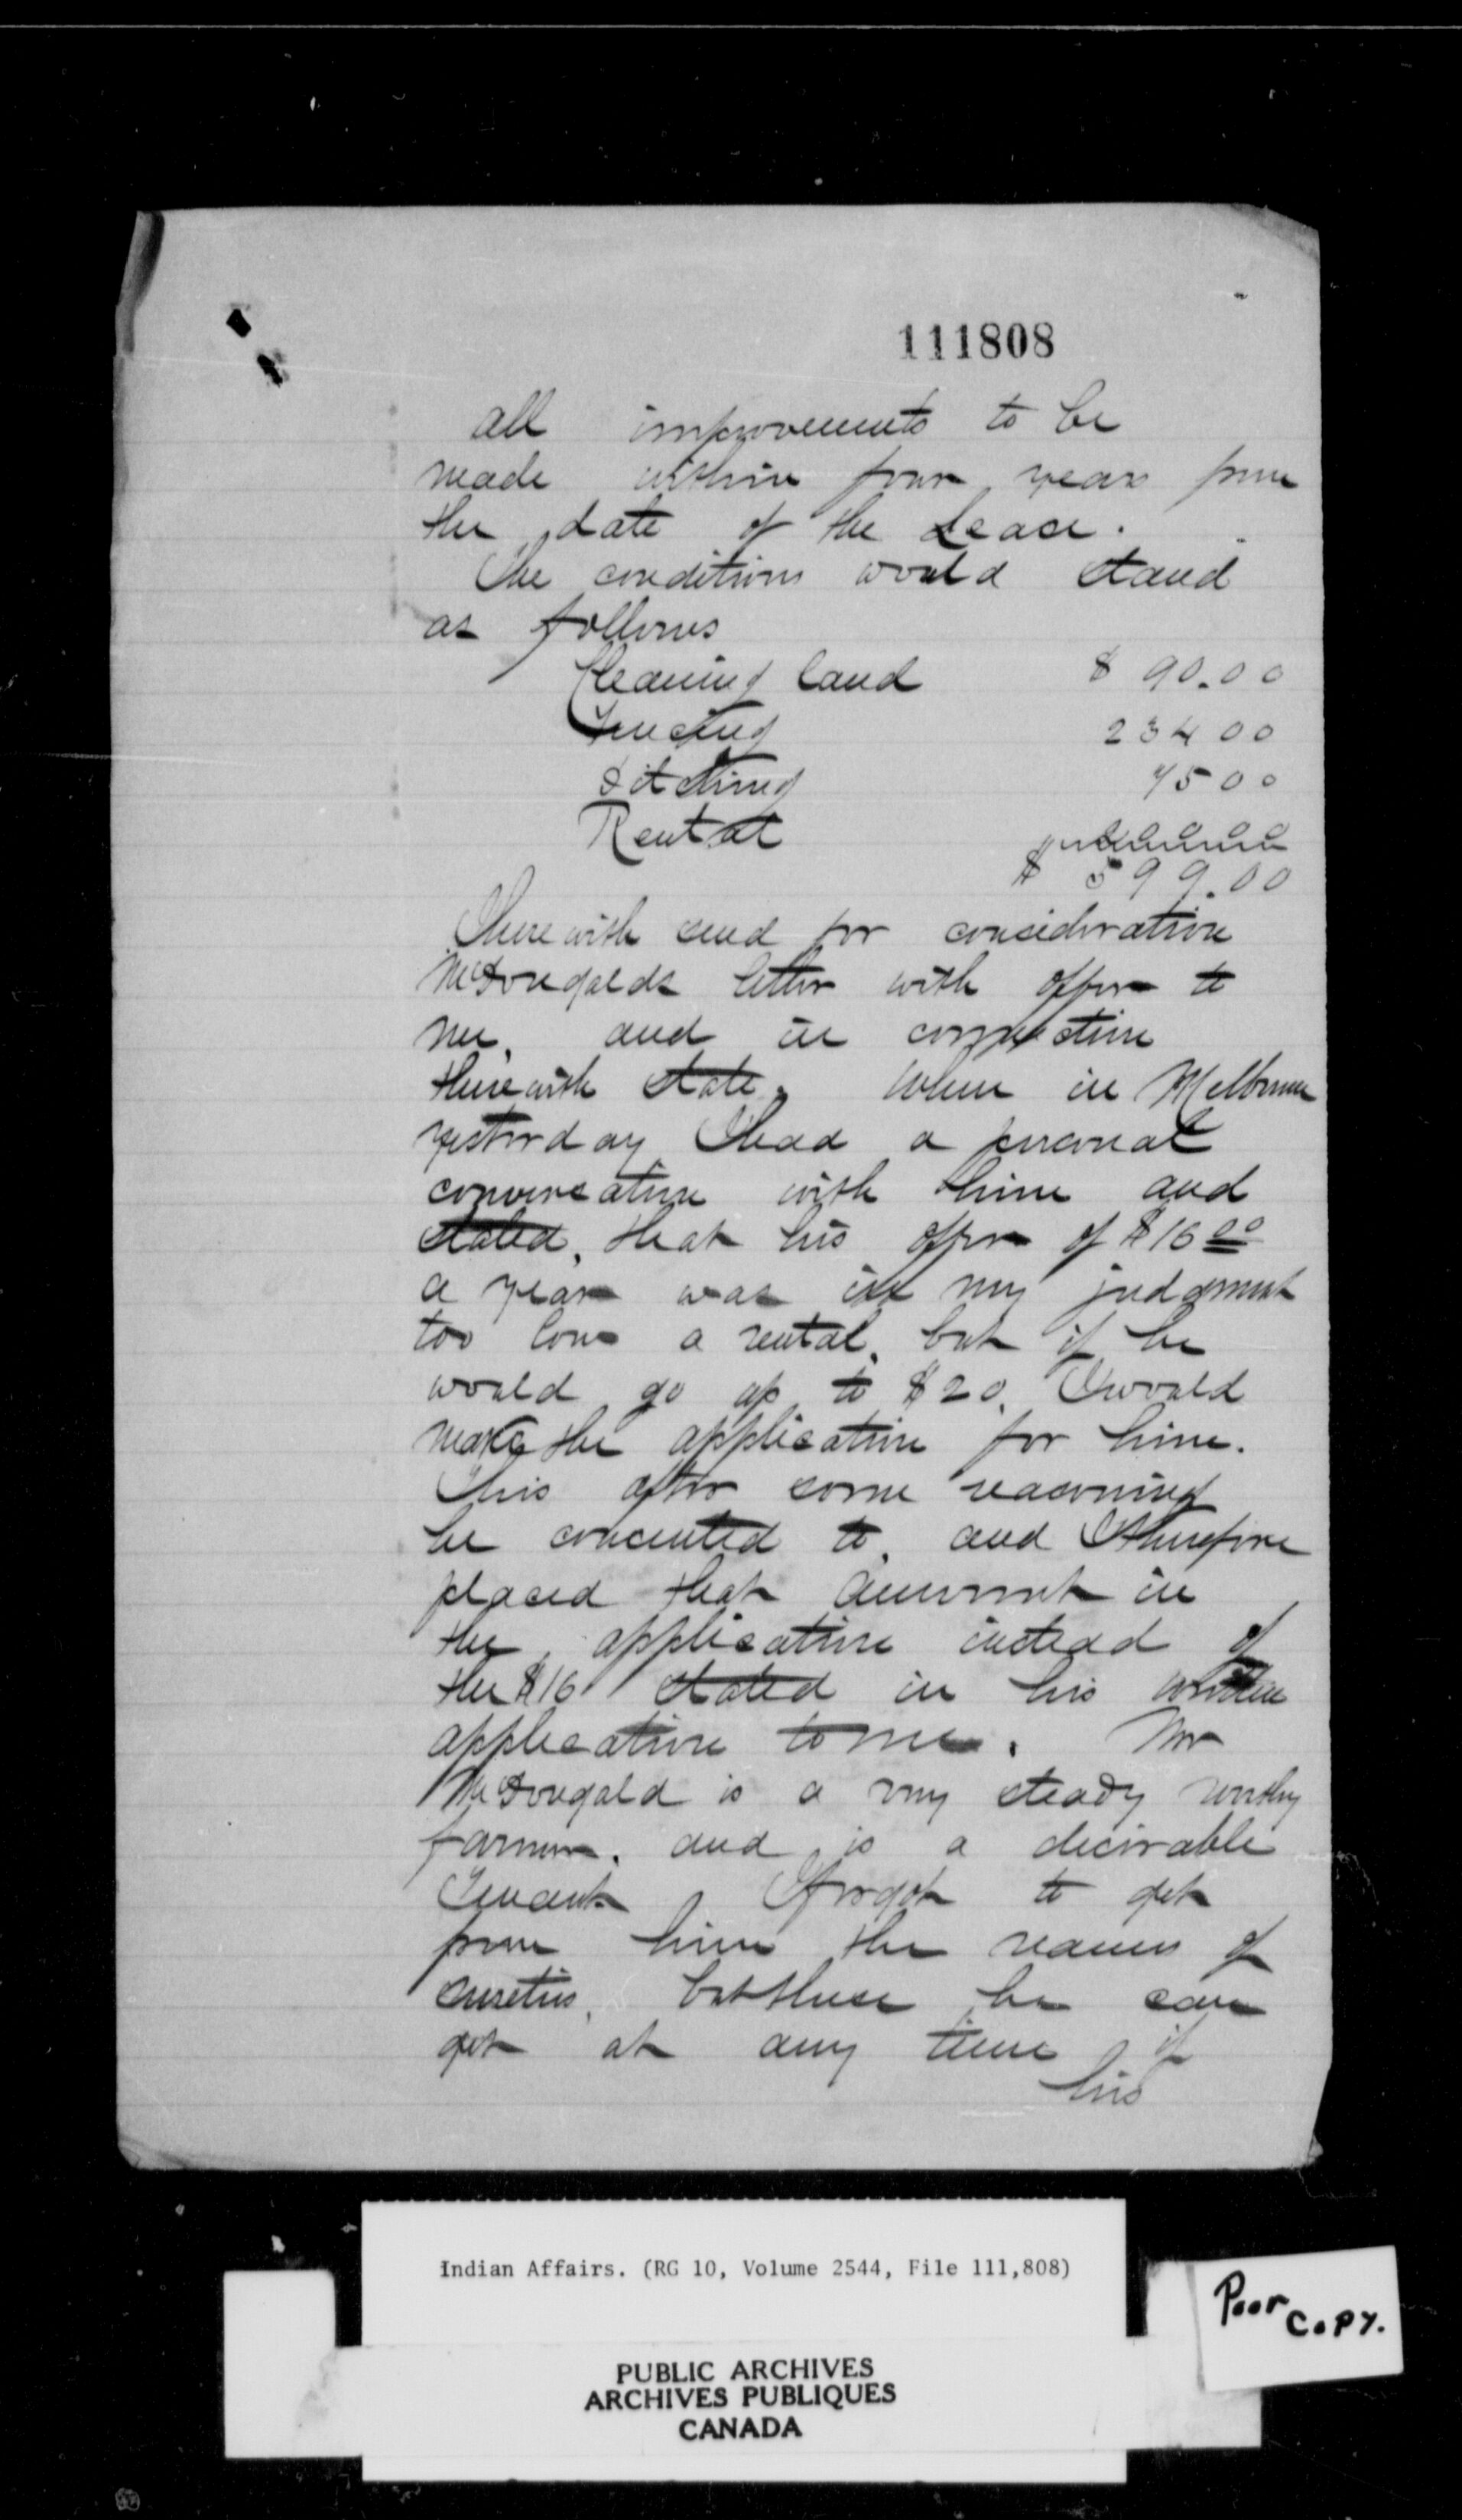 111808
all improvements to be
made within four years from
the date of the Lease.
The conditions would stand
as follows
Clearing land $ 90.00
Fencing 234 00
Ditching 75 00
Rental
$ 599.00
I herewith send for consideration
McDougalds letter with offer to
me, and in connection
therewith state, when in Melbourne
yesterday I had a personal
conversation with him and
stated, that his offer of $16 00
a year was in my judgment
too low a rental, but if he
would go up to $20, I would
make the application for him.
This after some reasoning
he consented to, and I therefore
placed that amount in
the application instead of
the $16 stated in his written
application to me. Mr
McDougald is a very steady worthy
farmer, and is a desirable
Tenant I forgot to get
from him the names of
sureties, but these he can
get at any time if
his
Indian Affairs. (RG 10, Volume 2544, File 111,808)
PUBLIC ARCHIVES
ARCHIVES PUBLIQUES
CANADA
Poor
Copy.